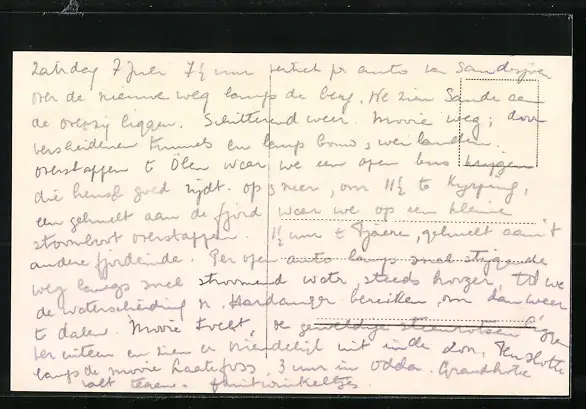 Zaterdag 7 Juli 7½ uur vertrek pr auto van Sand
over de nieuwe weg langs de berg. We zien Sande aan
de overzij liggen. Schitterend weer. Mooie weg; door
verscheidene tunnels en langs weilanden.
overstappen te Ölen waar we een open bus krijgen
die heusch goed rijdt. op neer, om 11½ te
een gehucht aan de fjord waar we op een kleine
stoomboot overstappen. 1½ uur t gehucht aan 't
andere fjordeinde. Per open auto langs snel stijgende
weg langs snel stroomend water, steeds hooger, tot we
de waterscheiding n. Hardanger bereiken, om dan weer
te dalen. Mooie tocht, de geweldige steenrotsen liggen
er en zien er vriendelijk uit in de zon. Ten slotte
langs de mooie Laatefoss, 3 uur in Odda. Grandhotel
valt tegen. fruitwinkeltjes.